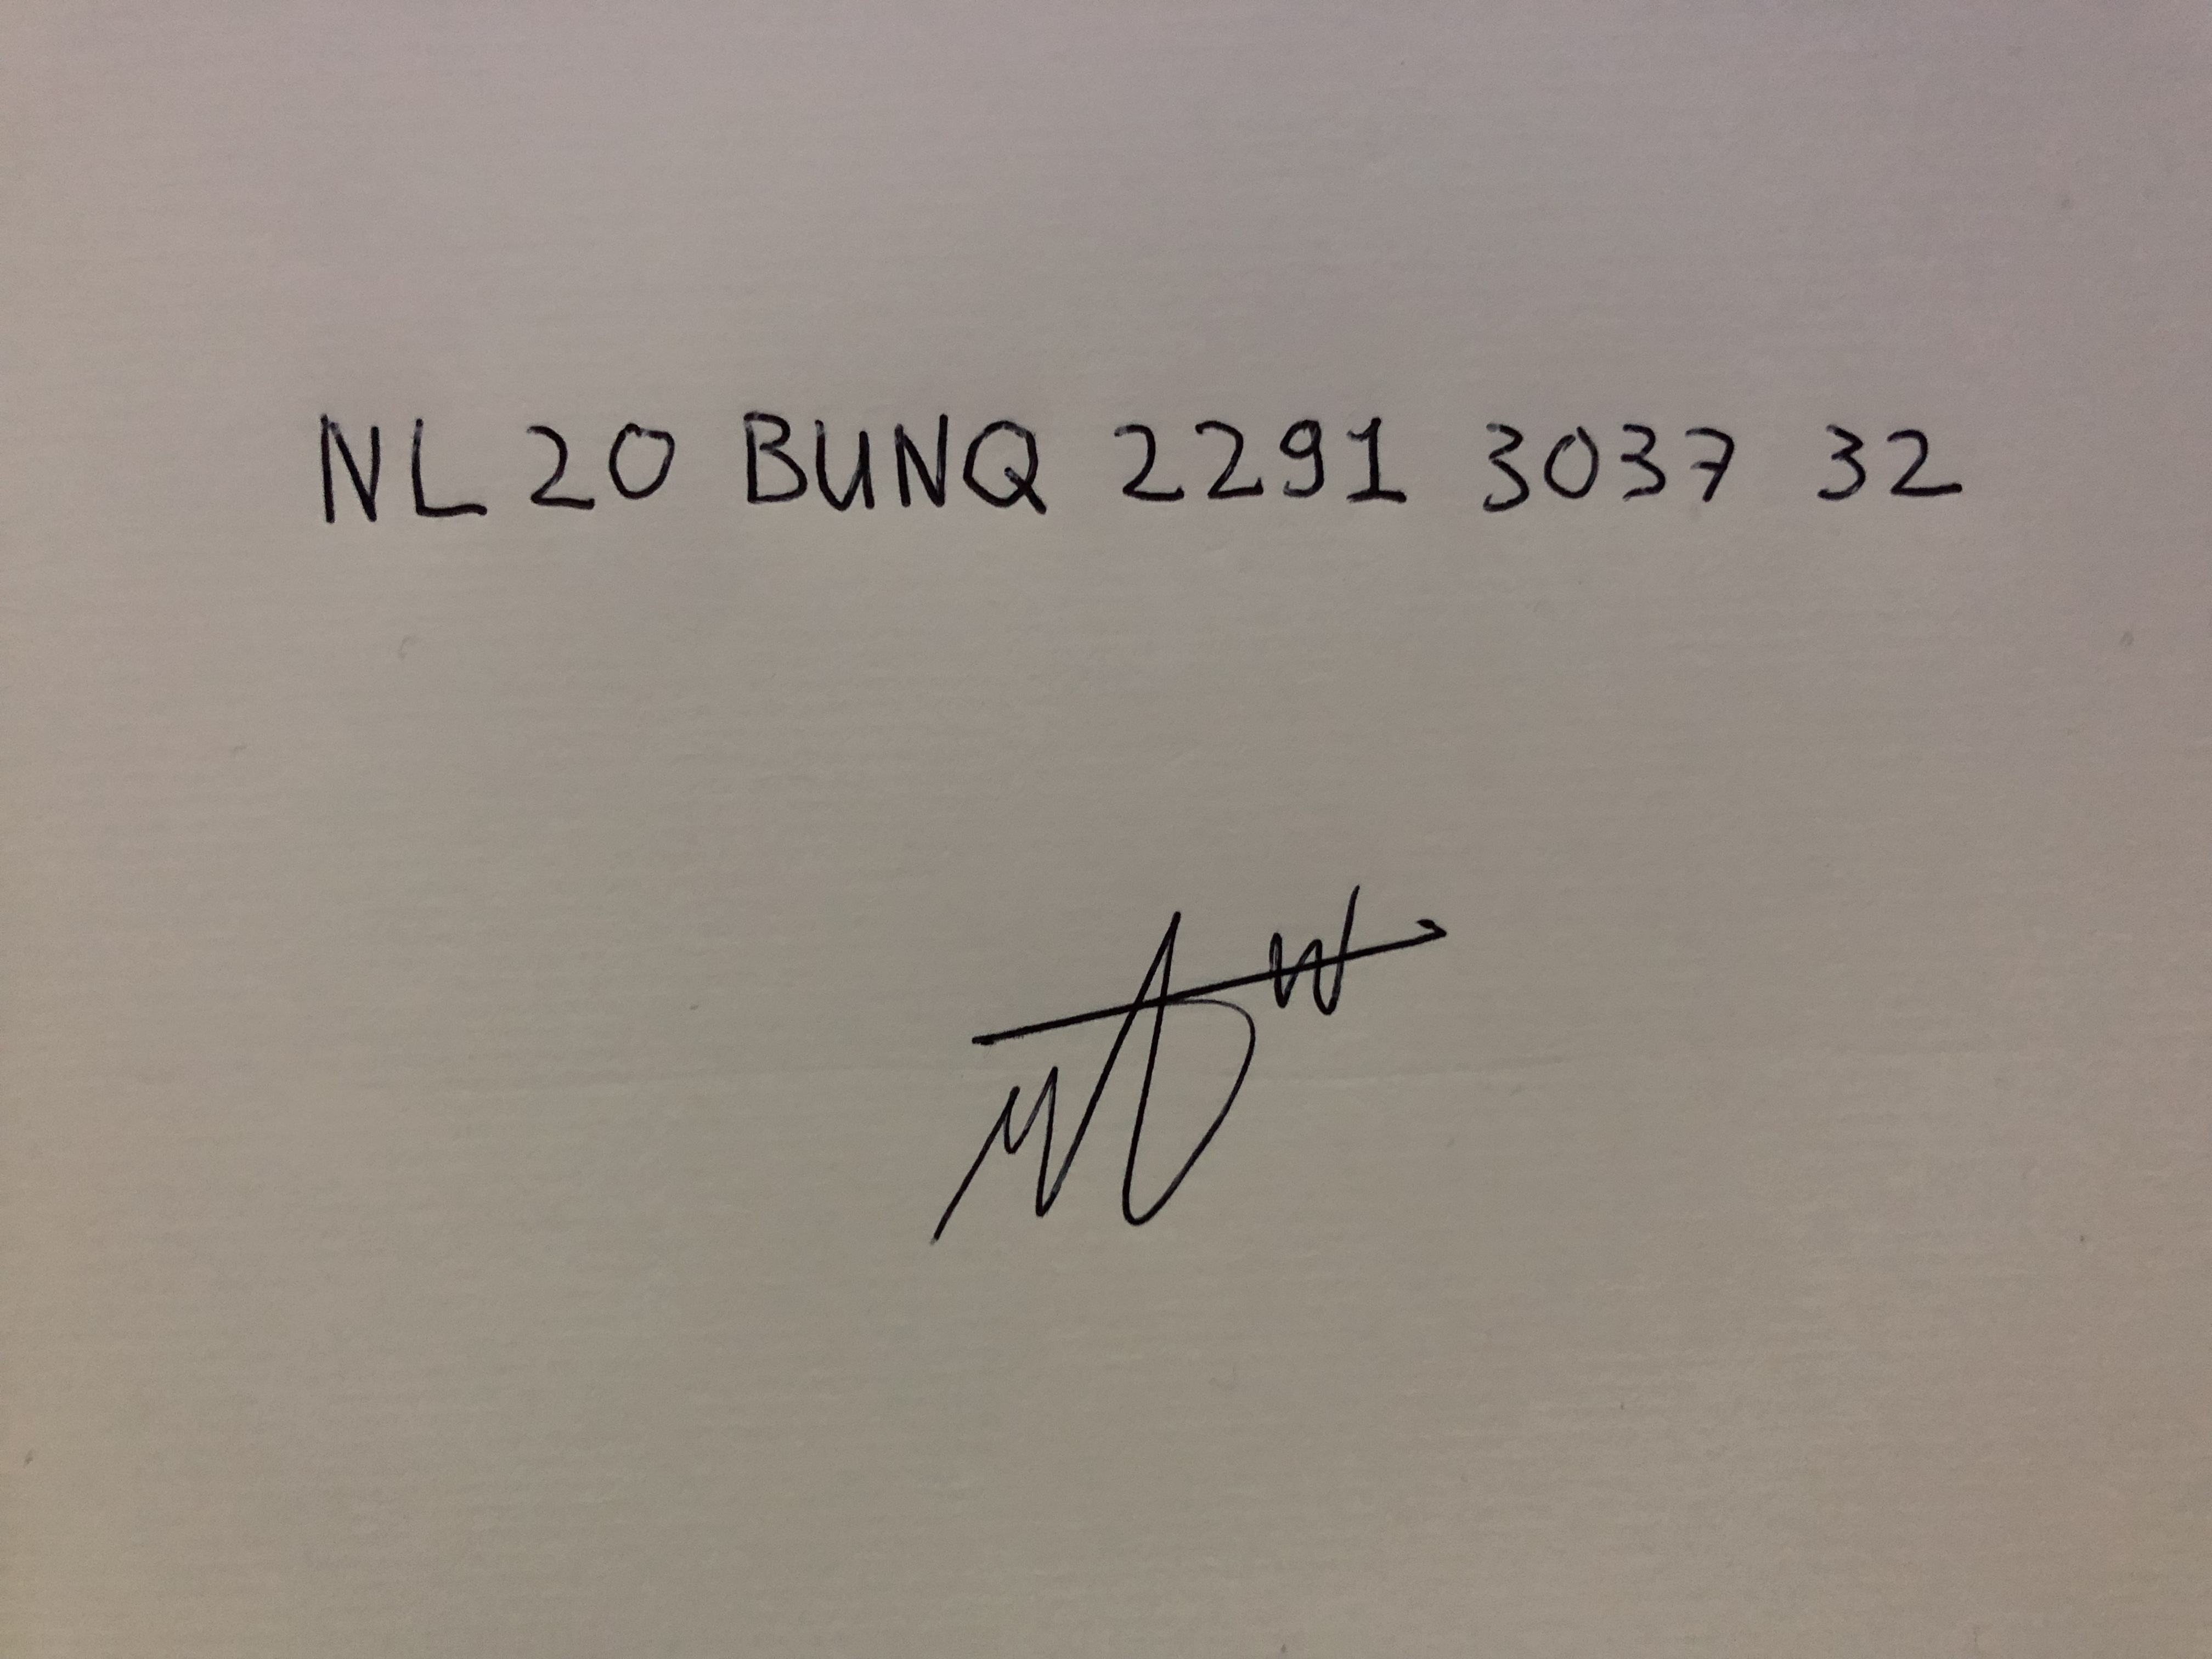 NL 20 BUNQ 2291 3037 32